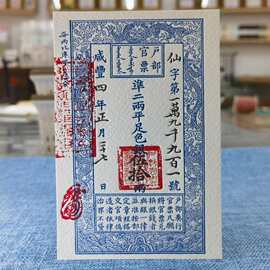 户部
官票
仙字第二萬九千九百一號
準二兩平足色銀伍拾兩
咸豐四年正月二七日
户部奏行
官票凡願
將官票兌
換銀錢者
與銀一律
並准按部
定章程搭
交官項偽
造者依律
治罪不貸